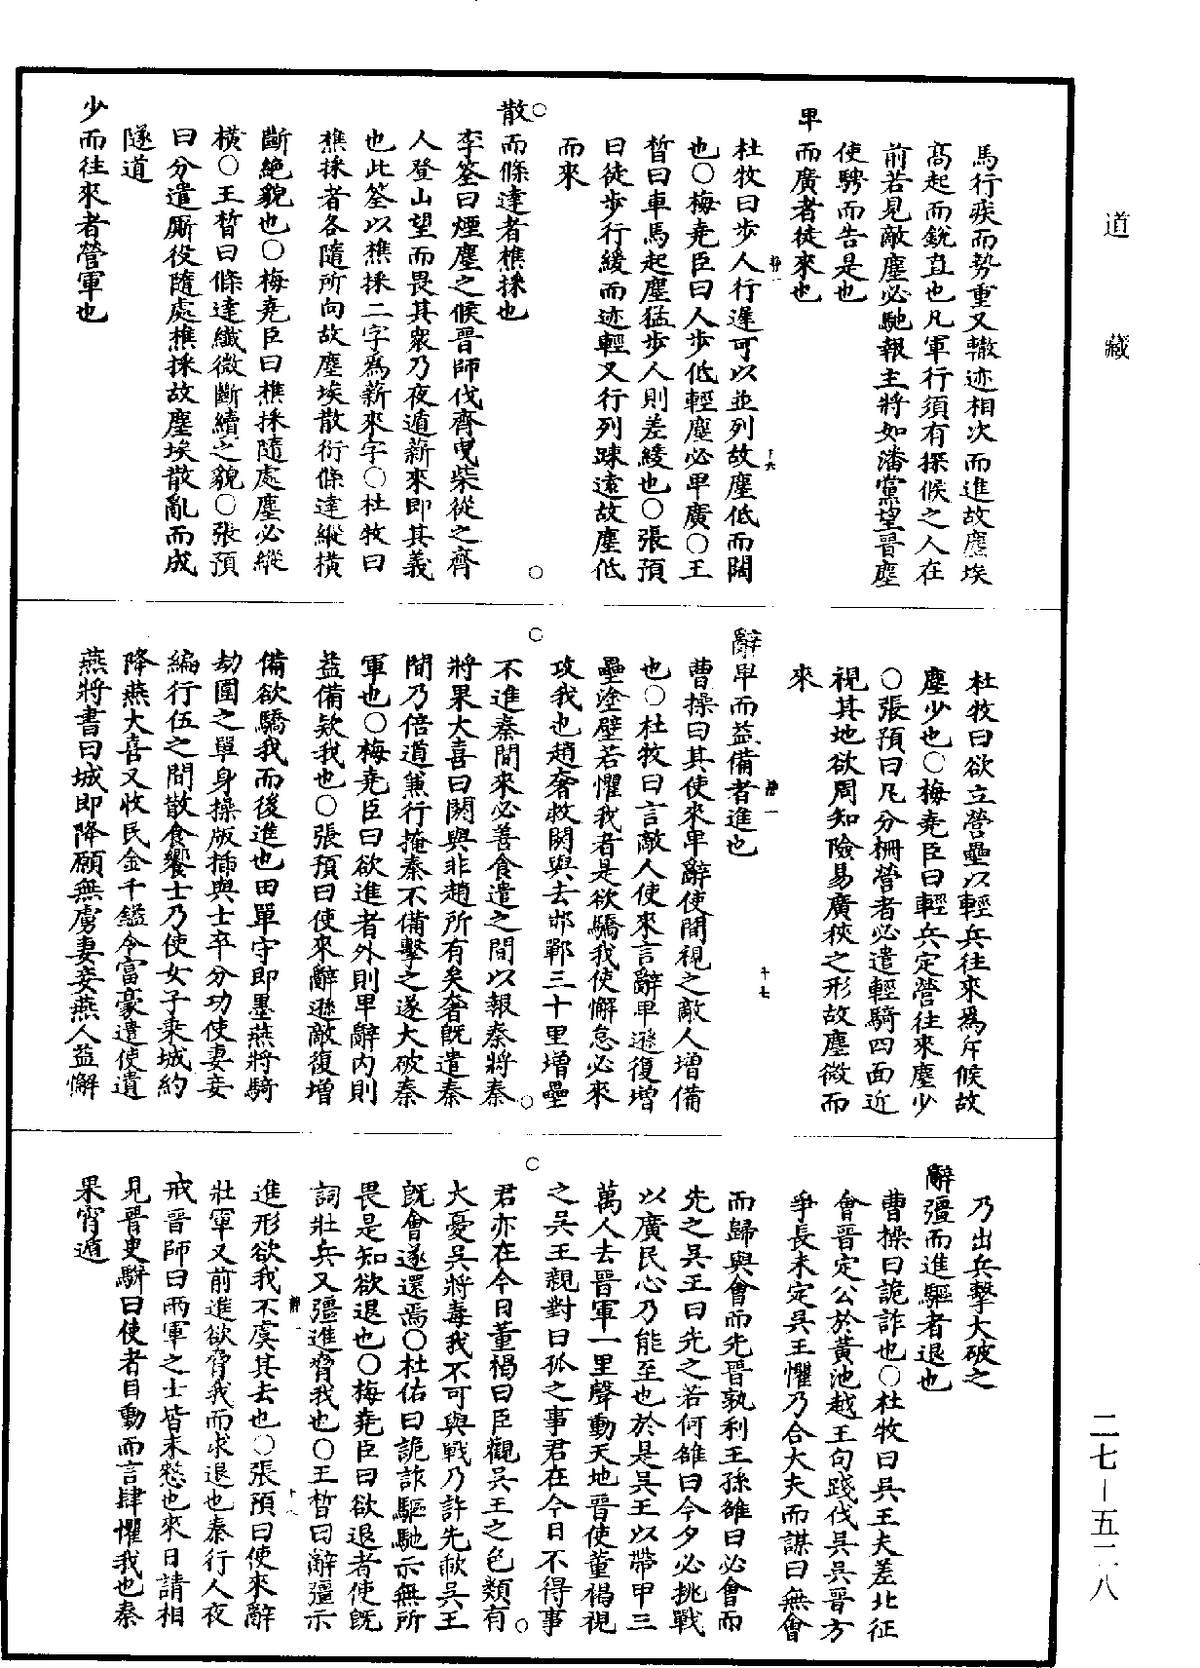 道藏
馬行疾而勢重又轍迹相次而進故塵埃
高起而銳直也凡軍行須有探候之人在
前若見敵塵必馳報主將如潘黨望晉塵
使騁而告是也
卑而廣者徒來也
杜牧曰步人行遲可以並列故塵低而闊
也○梅堯臣曰人步低輕塵必卑廣○王
晳曰車馬起塵猛步人則差緩也○張預
曰徒步行緩而迹輕又行列踈遠故塵低
而來
散而條達者樵採也
李筌曰煙塵之候晉師伐齊曳柴從之齊
人登山望而畏其衆乃夜遁薪來即其義
也此筌以樵採二字爲薪來字○杜牧曰
樵採者各隨所向故塵埃散衍條達縱橫
斷絕貌也○梅堯臣曰樵採隨處塵必縱
橫○王晳曰條達纖微斷續之貌○張預
曰分遣厮役隨處樵採故塵埃散亂而成
隧道
少而往來者營軍也
杜牧曰欲立營壘以輕兵往來爲斥候故
塵少也○梅堯臣曰輕兵定營往來塵少
○張預曰凡分柵營者必遣輕騎四面近
視其地欲周知險易廣狹之形故塵微而
來
辭卑而益備者進也
曹操曰其使來卑辭使間視之敵人增備
也○杜牧曰言敵人使來言辭卑遜復增
壘塗壁若懼我者是欲驕我使懈怠必來
攻我也趙奢救閼與去邯鄲三十里增壘
不進秦間來必善食遣之間以報秦將秦
將果大喜曰閼與非趙所有矣奢既遣秦
間乃倍道兼行掩秦不備擊之遂大破秦
軍也○梅堯臣曰欲進者外則卑辭內則
益備欵我也○張預曰使來辭遜敵復增
備欲驕我而後進也田單守即墨燕將騎
劫圍之單身操版插與士卒分功使妻妾
編行伍之間散食饗士乃使女子乘城約
降燕大喜又收民金千鎰令富豪遺使遺
燕將書曰城即降願無虜妻妾燕人益懈
乃出兵擊大破之
辭彊而進驅者退也
曹操曰詭詐也○杜牧曰吳王夫差北征
會晉定公於黃池越王句踐伐吳吳晉方
爭長未定吳王懼乃合大夫而謀曰無會
而歸與會而先晉孰利王孫雒曰必會而
先之吳王曰先之若何雒曰今夕必挑戰
以廣民心乃能至也於是吳王以帶甲三
萬人去晉軍一里聲動天地晉使董褐視
之吳王親對曰孤之事君在今日不得事
君亦在今日董褐曰臣觀吳王之色類有
大憂吳將毒我不可與戰乃許先歃吳王
旣會遂還焉○杜佑曰詭詐驅馳示無所
畏是知欲退也○梅堯臣曰欲退者使旣
詞壯兵又彊進脅我也○王晳曰辭彊示
進形欲我不虞其去也○張預曰使來辭
壯軍又前進欲脅我而求退也秦行人夜
戒晉師曰兩軍之士皆未憖也來日請相
見晉臾駢曰使者目動而言肆懼我也秦
果宵遁
二七－五二八